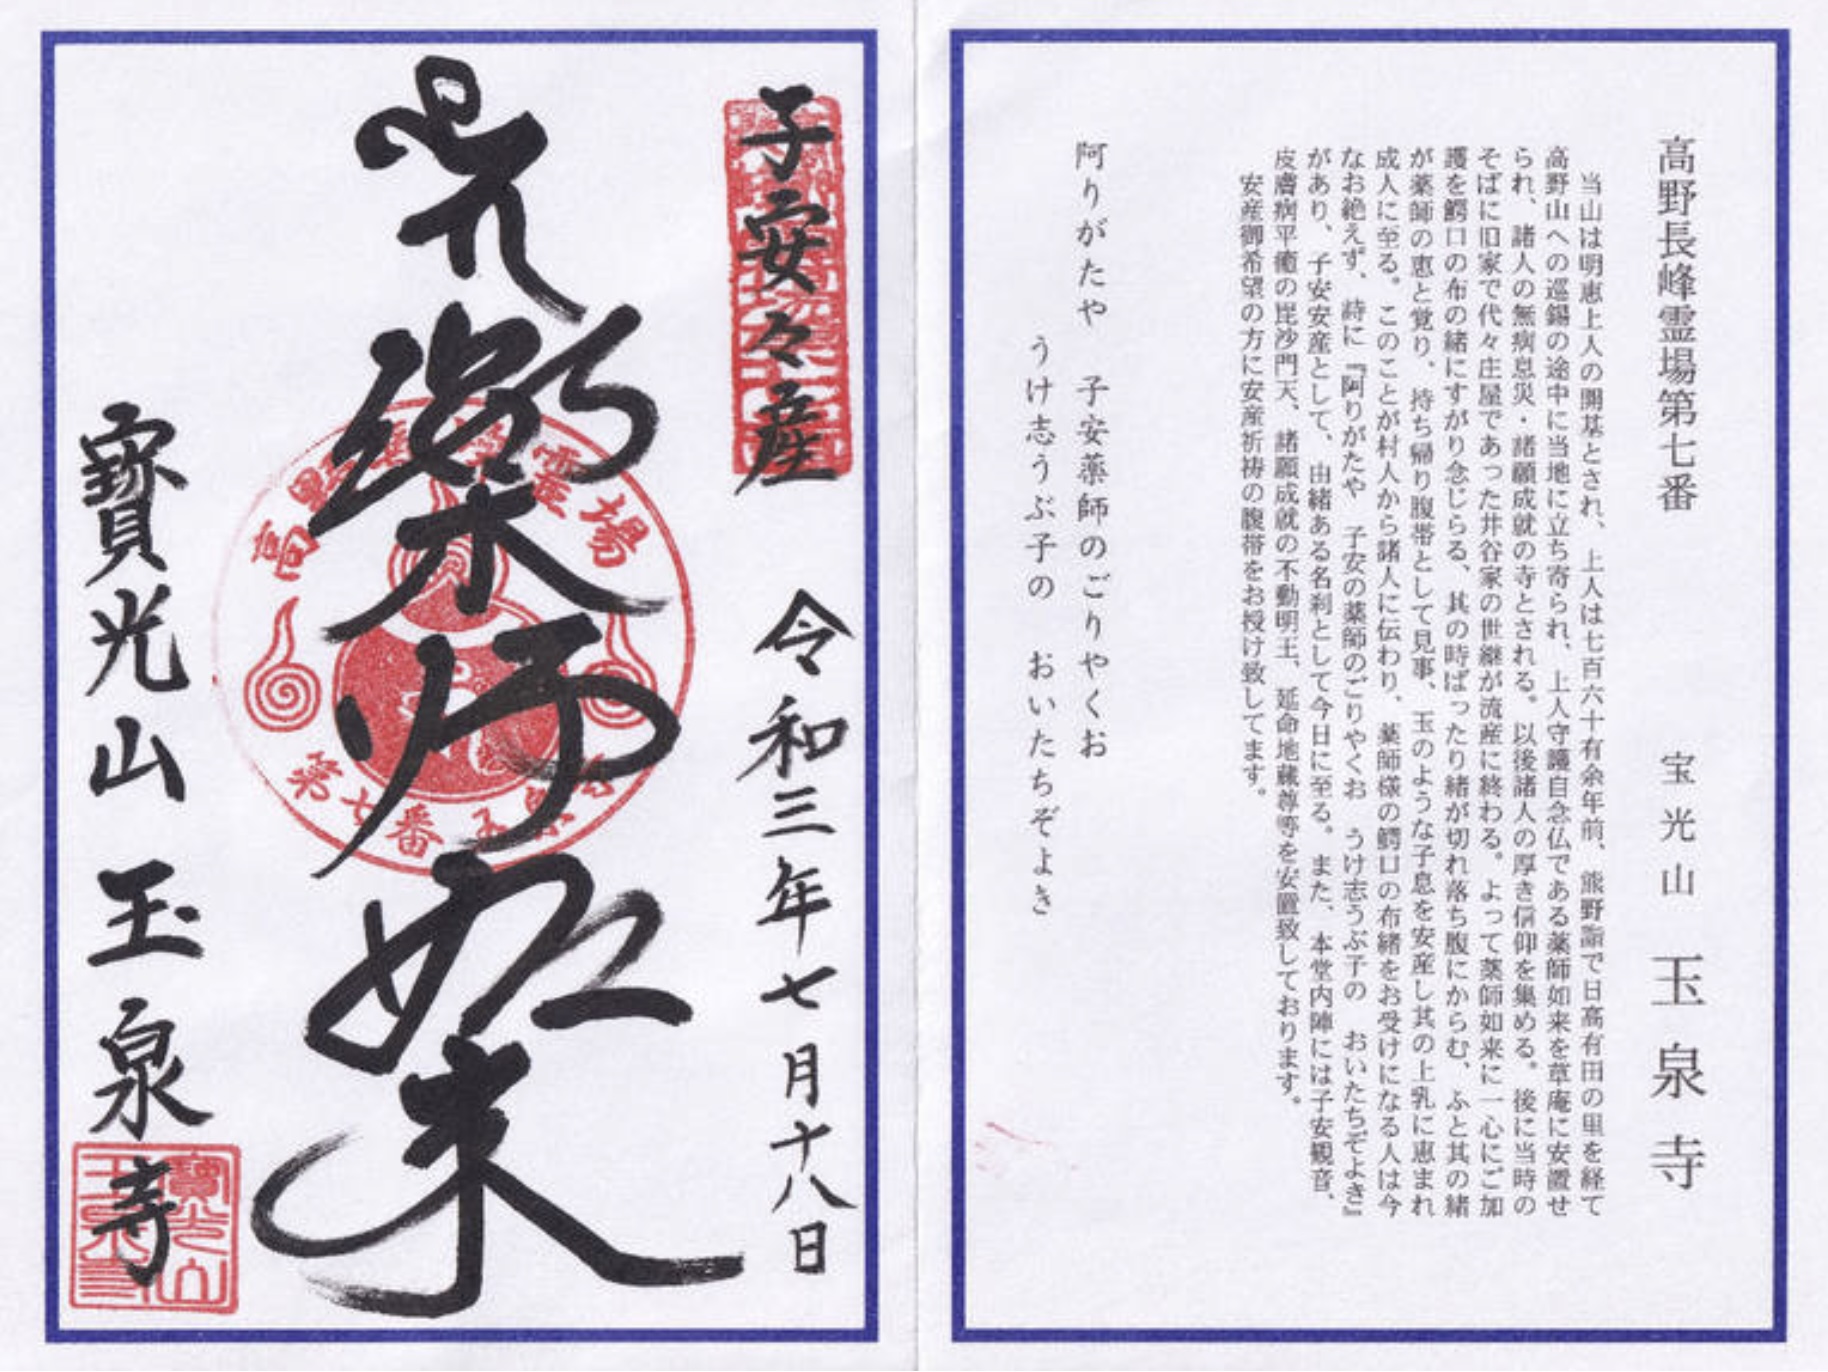 高野長峰霊場第七番　宝光山　玉泉寺
当山は明恵上人の開基とされ、上人は七百六十有余年前、熊野詣で日高有田の里を経て
高野山への巡錫の途中に当地に立ち寄られ、上人守護自念仏である薬師如来を草庵に安置せ
られ、諸人の無病息災・諸願成就の寺とされる。以後諸人の厚き信仰を集める。後に当時の
そばに旧家で代々庄屋であった井谷家の世継が流産に終わる。よって薬師如来に一心にご加
護を鰐口の布の緒にすがり念じらる、其の時ばったり緒が切れ落ち腹にからむ、ふと其の緒
が薬師の恵と覚り、持ち帰り腹帯として見事、玉のような子息を安産し其の上乳に恵まれ
成人に至る。このことが村人から諸人に伝わり、薬師様の鰐口の布緒をお受けになる人は今
なお絶えず、詩に『阿りがたや　子安の薬師のごりやくお　うけ志うぶ子の　おいたちぞよき』
があり、子安安産として、由緒ある名刹として今日に至る。また、本堂内陣には子安観音、
皮膚病平癒の毘沙門天、諸願成就の不動明王、延命地蔵尊等を安置致しております。
安産御希望の方に安産祈祷の腹帯をお授け致してます。
阿りがたや　子安薬師のごりやくお
うけ志うぶ子の　おいたちぞよき
子安々産　令和三年七月十八日
薬师如来
寶光山　玉泉寺
高野長峰霊場
第七番玉泉寺